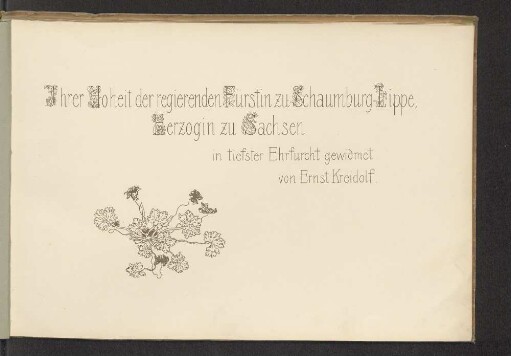 Ihrer Hoheit der regierenden Fürstin zu Schaumburg-Lippe,
Herzogin zu Sachsen
in tiefster Ehrfurcht gewidmet
von Ernst Kreidolf